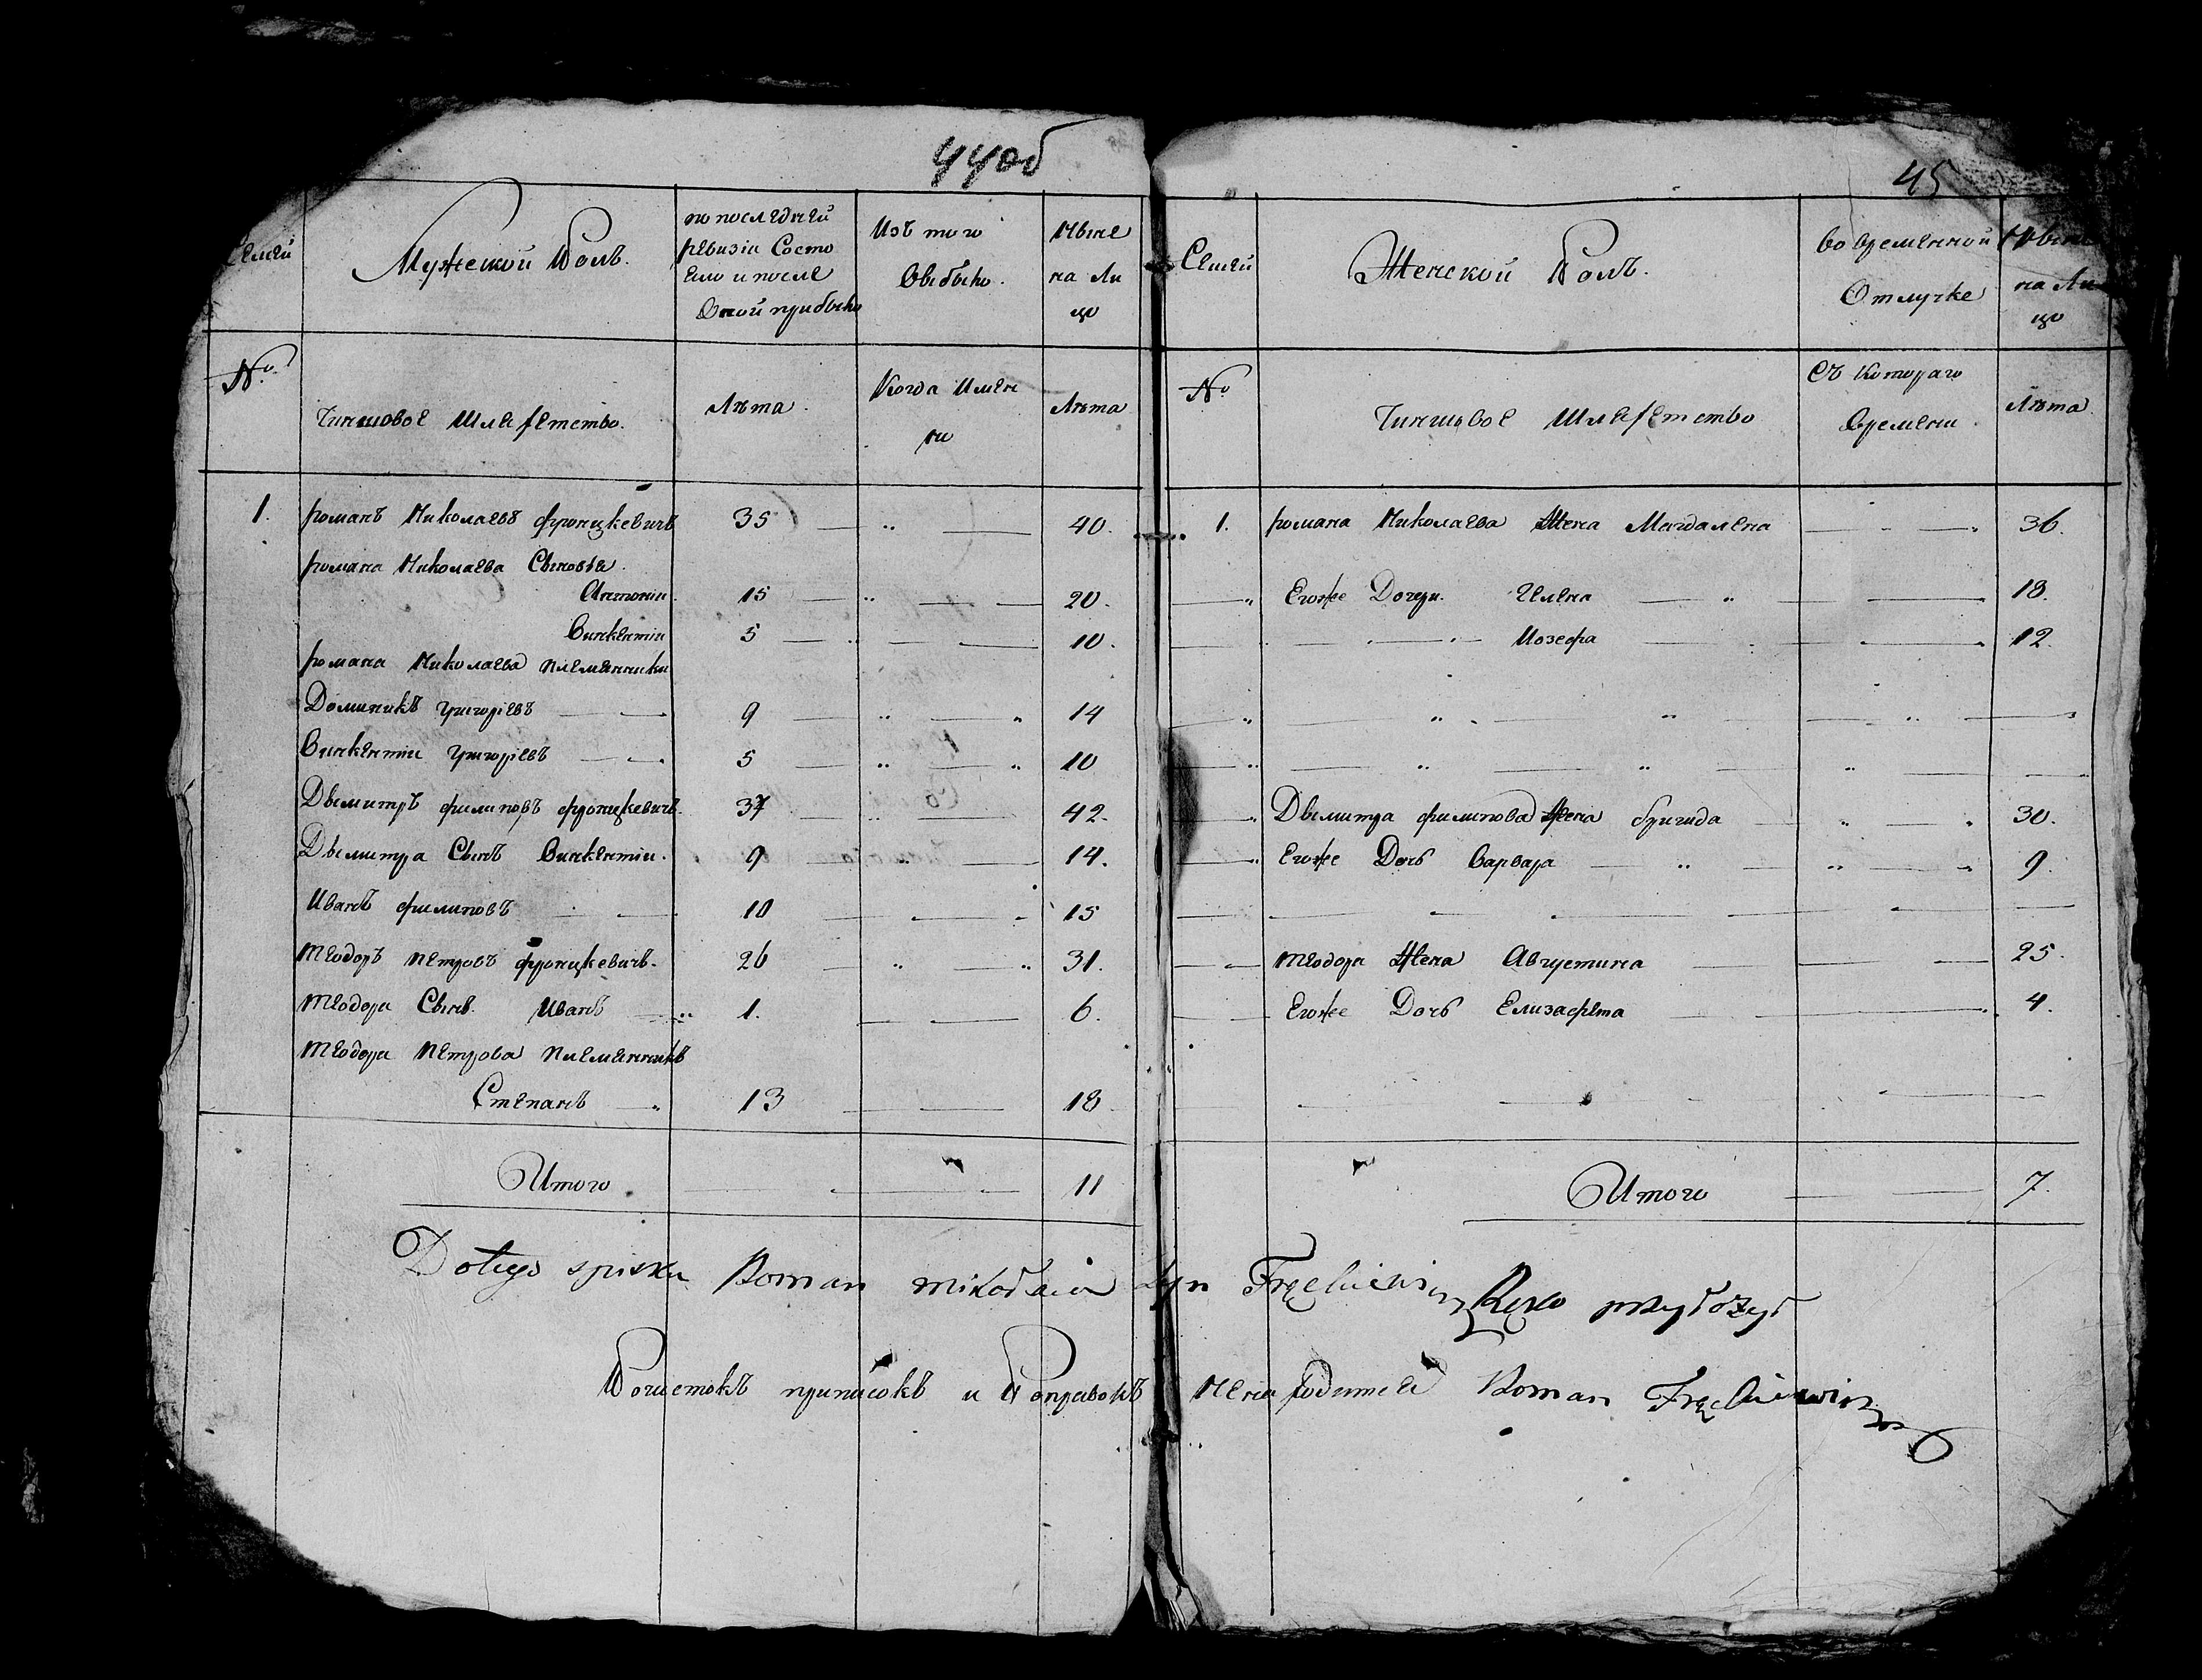 44об
45
Семей
Мужеской Полъ.
по последней
ревизіи Состо
яло и после
Оной прибыло
Изъ того
Овыбыло.
Ныне
на Ли
цо
№
Чиншовое Шляхетство.
Лѣта.
Когда Имен
но
Лѣта
1. романъ Николаевъ фронцкевичъ 35 40.
романа Николаева Сыновья.
Антоніи. 15 20.
Викентіи 5 10.
романа Николаева племянники
Доминикъ Григоріевъ 9 14
Викентіи Григоріевъ 5 10
Двмитръ филиповъ фронцкевичъ. 37 42.
Двмитра Сынъ Викентіи. 9 14.
Иванъ филиповъ 10 15
тѣодоръ петровъ фронцкевичъ. 26 31.
тѣодора Сынъ. Иванъ 1. 6.
тѣодора петрова племянникъ
Степанъ 13 18.
Итого 11
Семей
Женской Полъ.
во временной
Отлучке
Ныне
на Ли
цо
№
Чиншовое Шляхетство
Съ Котораго
времени
Лѣта.
1. романа Николаева Жена Магдалена 36.
Егоже Дочери. Гелена 18.
Иозефа 12.
Двмитра филипова Жена бригида 30.
Егоже Дочь варвара 9.
тѣодора Жена Августина 25.
Егоже Дочь Елизафета 4.
Итого 7.
Dotego spisku Roman mikołaia syn Fręckiewicz Ręko przyłożył
Почистокъ приписокъ и Поправокъ Роман Fręckiewicz